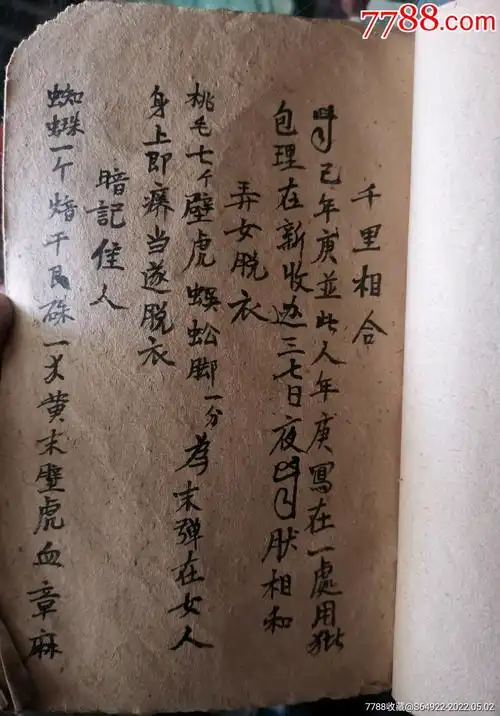 7788.com
千里相合
己年庚並此人年庚寫在一處用
包理在新收边三七日夜 肰相和
弄女脱衣
桃毛七个壁虎蜈蚣脚一分為末弹在女人
身上即癢当遂脱衣
暗記佳人
蜘蛛一个焙干 硃一 黄末壁虎血章麻
7788收藏@S64922-2022.05.02